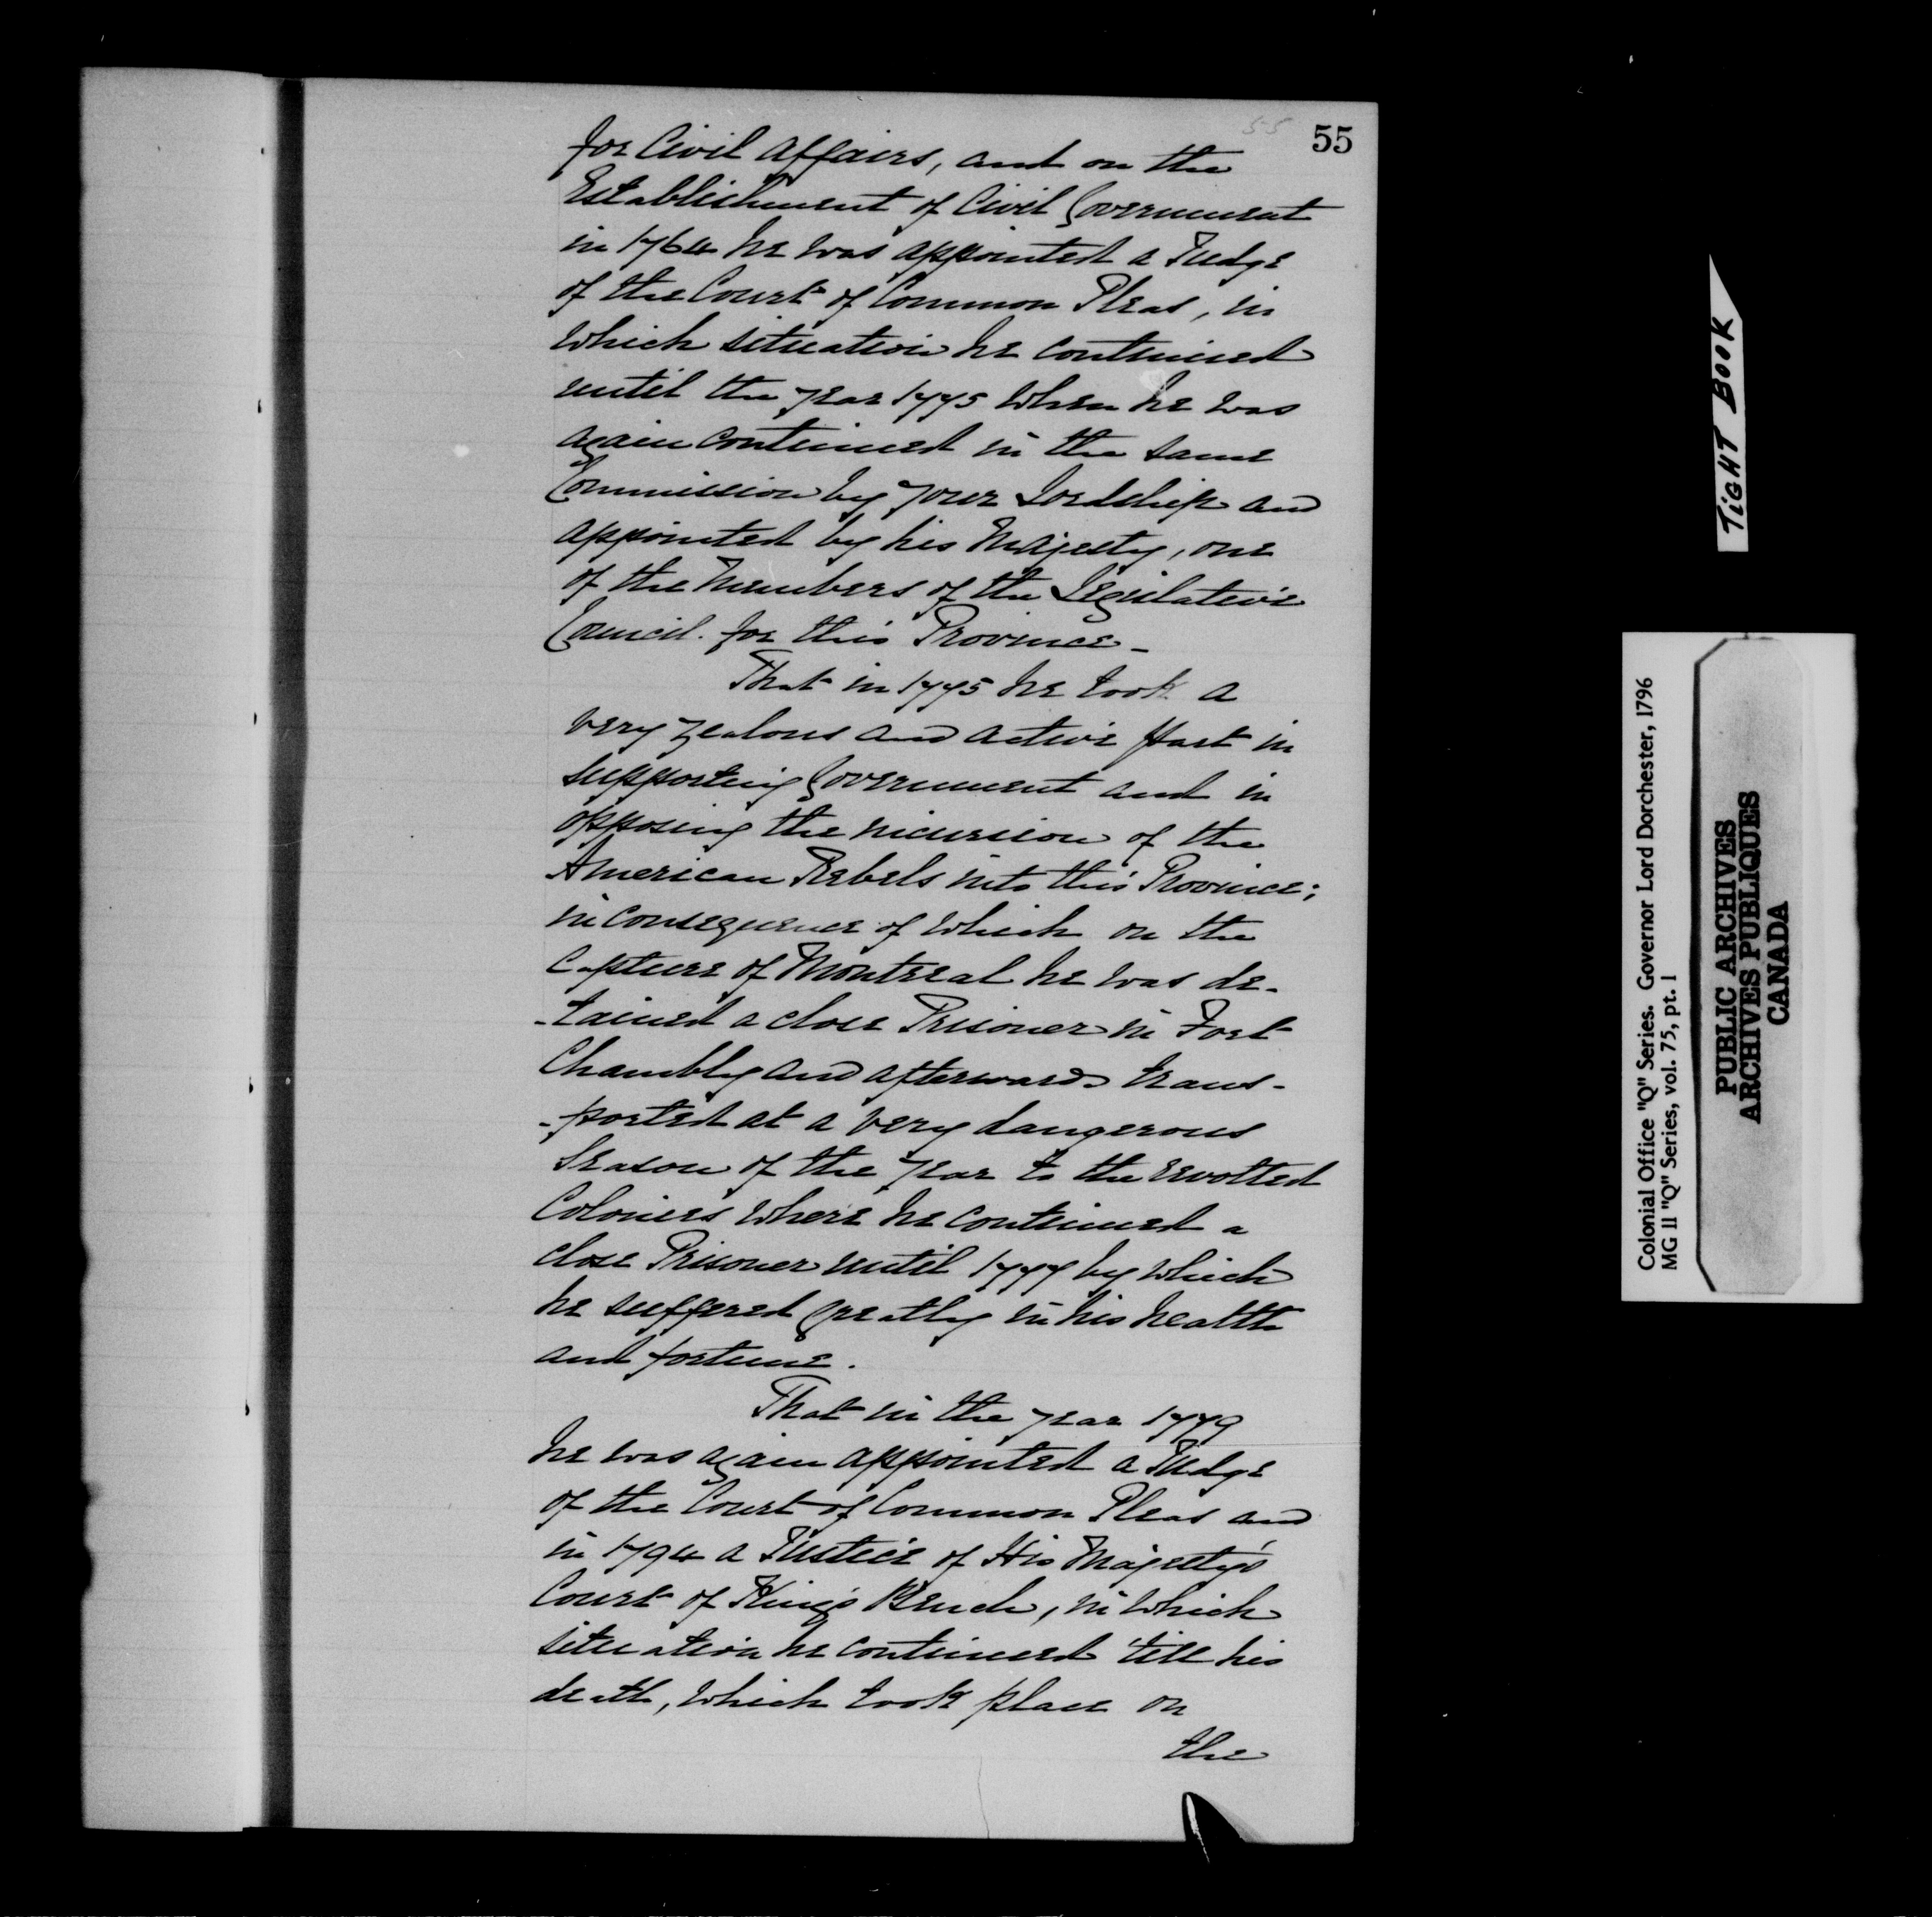 55
55
for Civil Affairs, and on the
Establishment of Civil Government
in 1764 he was appointed a Judge
of the Court of Common Pleas, in
which situation he continued
until the year 1775 when he was
again continued in the same
Commission by your Lordship and
appointed by his Majesty, one
of the Members of the Legislative
Council. for this Province -
That in 1775 he took a
very zealous and active part in
supporting Government and in
opposing the incursion of the
American Rebels into this Province;
in consequence of which on the
Capture of Montreal he was de-
-tained a close Prisoner in Fort
Chambly and afterwards trans-
-ported at a very dangerous
Season of the year to the revolted
Colonies where he continued a
close Prisoner until 1777 by which
he suffered greatly in his health
and fortune.
That in the year 1779
he was again appointed a Judge
of the Court of Common Pleas and
in 1794 a Justice of His Majesty's
Court of King's Bench, in which
situation he continued 'till his
death, which took place on
the
TIGHT BOOK
Colonial Office "Q" Series. Governor Lord Dorchester, 1796
MG 11 "Q" Series, vol. 75, pt. 1
PUBLIC ARCHIVES
ARCHIVES PUBLIQUES
CANADA